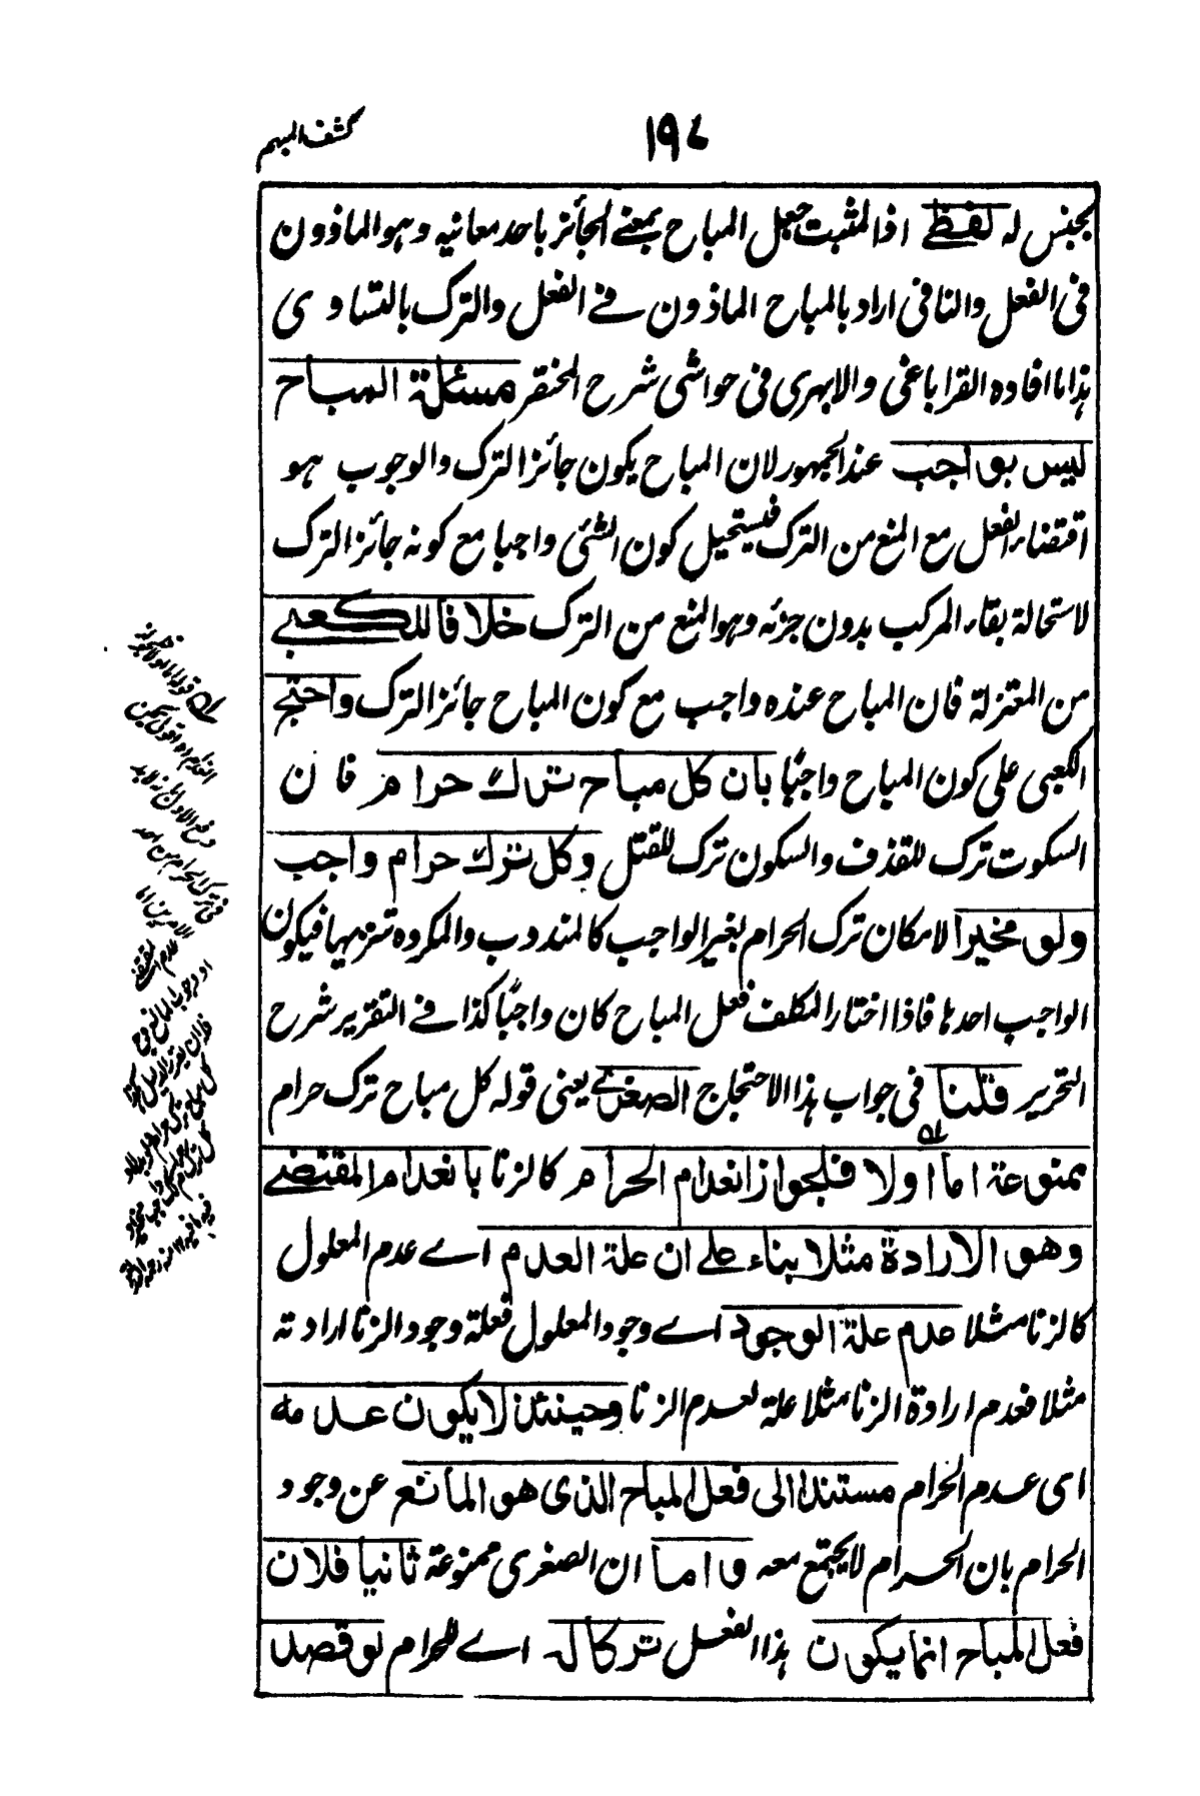 ١٩٧
كشف المبهم
بجنس له لفظے اذ المثبت جعل المباح بمعنے الجائز باحد معانيه وهو الماذون
فى الفعل والنافى اراد بالمباح الماذون فے الفعل والترك بالتساوى
هذا ما افاده القراباغى والابهرى فى حواشى شرح المختصر مسئلة المباح
ليس بواجب عند الجمهور لان المباح يكون جائز الترك والوجوب هو
اقتضاء الفعل مع المنع من الترك فيستحيل كون الشئى واجبا مع كونه جائز الترك
لاستحالة بقاء المركب بدون جزئه وهو المنع من الترك خلافا للكعبے
من المعتزلة فان المباح عنده واجب مع كون المباح جائز الترك واحتج
الكعبى على كون المباح واجبًا بان كل مباح ترك حرام فان
السكوت ترك للقذف والسكون ترك للقتل وكل ترك حرام واجب
ولو مخيرا لامكان ترك الحرام بغير الواجب كالمندوب والمكروه تنزيها فيكون
الواجب احدها فاذا اختار المكلف فعل المباح كان واجبًا كذا فے التقرير شرح
التحرير قلنا فى جواب هذا الاحتجاج الصغرےٰ يعنى قوله كل مباح ترك حرام
ممنوعة اما اولا فلجواز انعدام الحرام كالزنا بانعدام المقتضے
وهو الارادة مثلا بناء علے ان علة العدم اے عدم المعلول
كالزنا مثلا عدم علة الوجود اے وجود المعلول فعلة وجود الزنا ارادته
مثلا فعدم ارادة الزنا مثلا علة لعدم الزنا وحينئذ لا يكون عدمه
اى عدم الحرام مستندا الى فعل المباح الذى هو المانع عن وجود
الحرام بان الحرام لا يجتمع معه واما ان الصغرى ممنوعة ثانيا فلان
فعل المباح انما يكون هذا الفعل تركا له اے للحرام لو قصد
له قوله اما اولا
او وجوب المانع